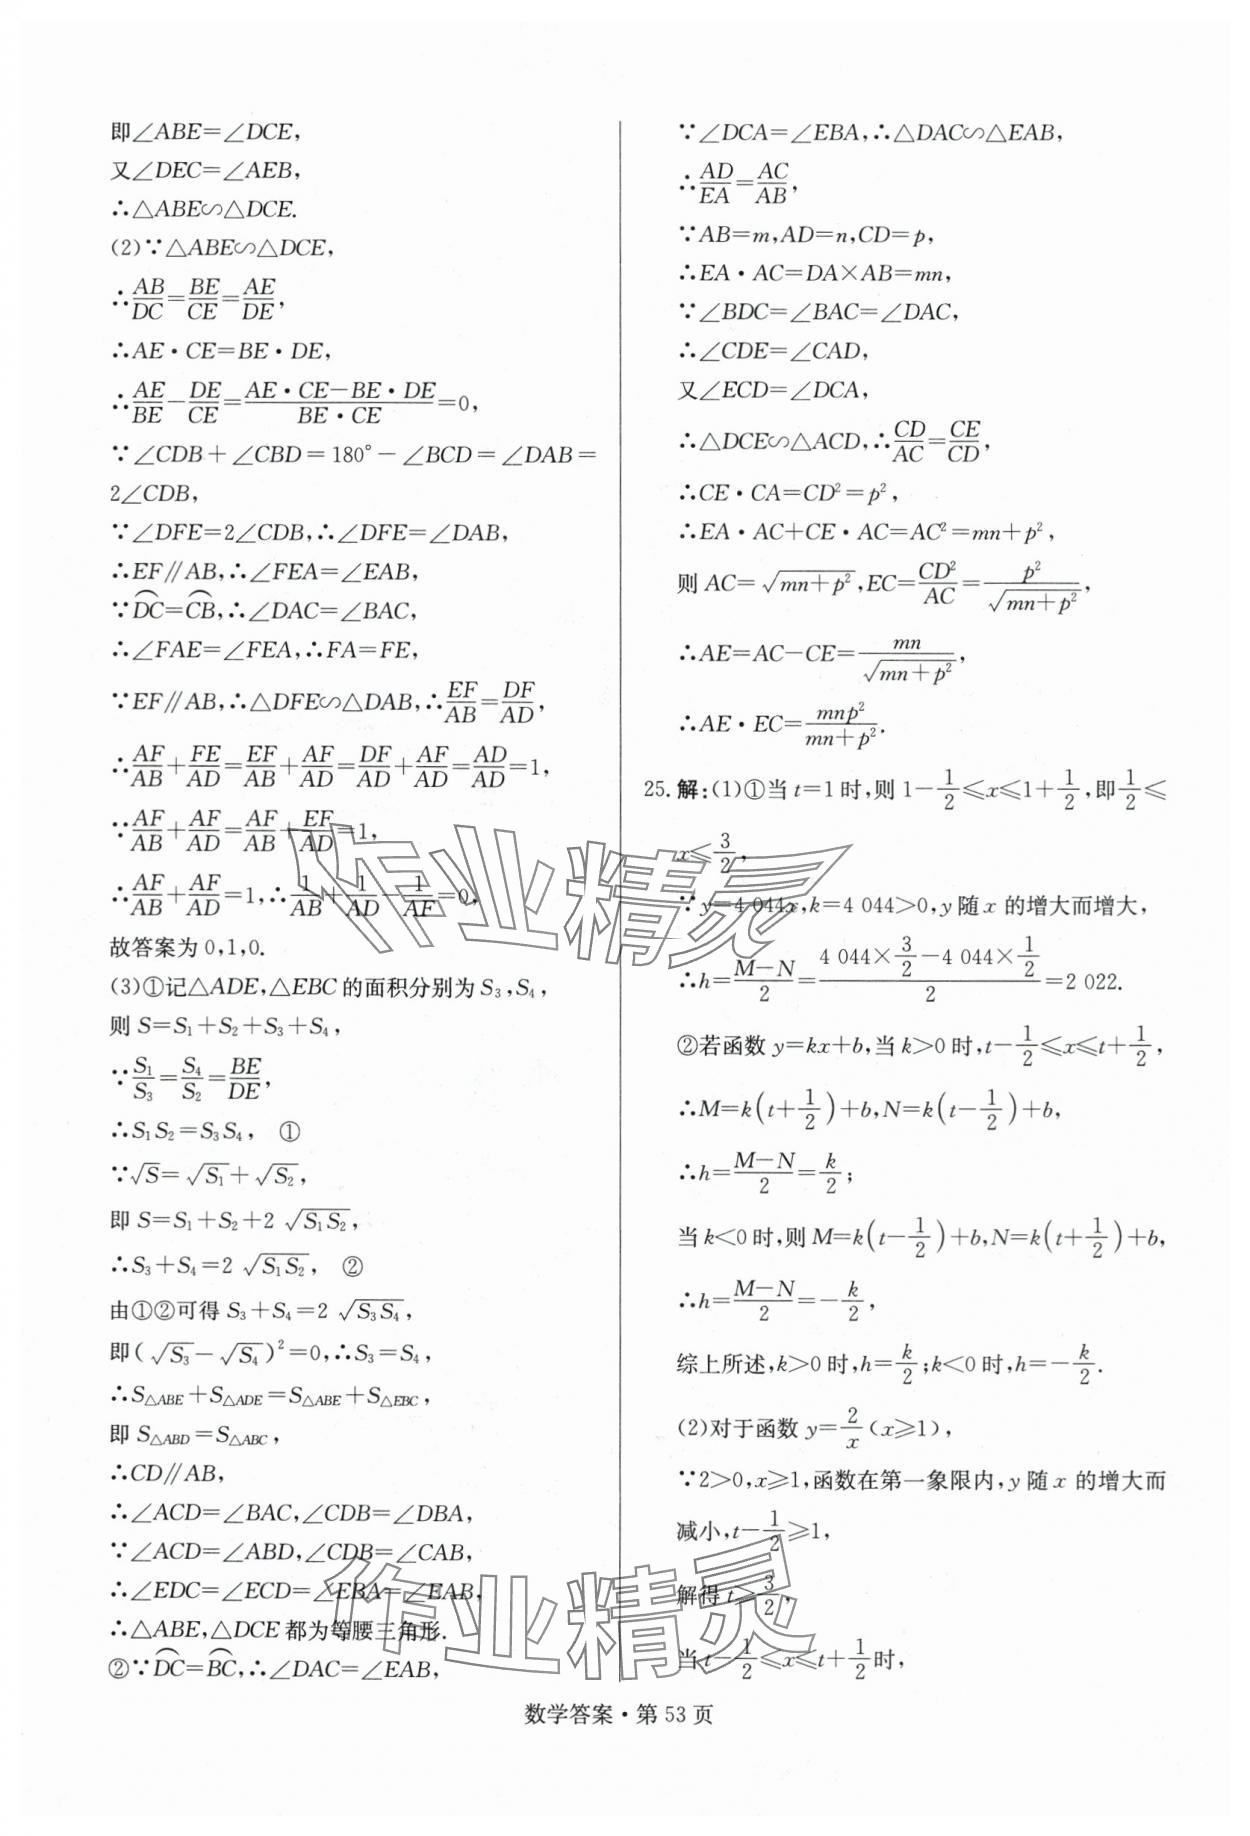 即∠ABE=∠DCE,
又∠DEC=∠AEB,
∴△ABE∽△DCE.
(2)∵△ABE∽△DCE,
∴AB/DC=BE/CE=AE/DE,
∴AE·CE=BE·DE,
∴AE/BE-DE/CE=(AE·CE-BE·DE)/(BE·CE)=0,
∵∠CDB+∠CBD=180°-∠BCD=∠DAB=
2∠CDB,
∵∠DFE=2∠CDB,∴∠DFE=∠DAB,
∴EF∥AB,∴∠FEA=∠EAB,
∵⌒DC=⌒CB,∴∠DAC=∠BAC,
∴∠FAE=∠FEA,∴FA=FE,
∵EF∥AB,∴△DFE∽△DAB,∴EF/AB=DF/AD,
∴AF/AB+FE/AD=EF/AB+AF/AD=DF/AD+AF/AD=AD/AD=1,
∵AF/AB+AF/AD=AF/AB+EF/AD=1,
∴AF/AB+AF/AD=1,∴1/AB+1/AD-1/AF=0,
故答案为 0,1,0.
(3)①记△ADE,△EBC 的面积分别为 S₃,S₄,
则 S=S₁+S₂+S₃+S₄,
∵S₁/S₃=S₄/S₂=BE/DE,
∴S₁S₂=S₃S₄, ①
∵√S=√S₁+√S₂,
即 S=S₁+S₂+2√(S₁S₂),
∴S₃+S₄=2√(S₁S₂), ②
由①②可得 S₃+S₄=2√(S₃S₄),
即(√S₃-√S₄)²=0,∴S₃=S₄,
∴S△ABE+S△ADE=S△ABE+S△EBC,
即 S△ABD=S△ABC,
∴CD∥AB,
∴∠ACD=∠BAC,∠CDB=∠DBA,
∵∠ACD=∠ABD,∠CDB=∠CAB,
∴∠EDC=∠ECD=∠EBA=∠EAB,
∴△ABE,△DCE 都为等腰三角形.
②∵⌒DC=⌒BC,∴∠DAC=∠EAB,
∵∠DCA=∠EBA,∴△DAC∽△EAB,
∴AD/EA=AC/AB,
∵AB=m,AD=n,CD=p,
∴EA·AC=DA×AB=mn,
∵∠BDC=∠BAC=∠DAC,
∴∠CDE=∠CAD,
又∠ECD=∠DCA,
∴△DCE∽△ACD,∴CD/AC=CE/CD,
∴CE·CA=CD²=p²,
∴EA·AC+CE·AC=AC²=mn+p²,
则 AC=√(mn+p²),EC=CD²/AC=p²/√(mn+p²),
∴AE=AC-CE=mn/√(mn+p²),
∴AE·EC=mnp²/(mn+p²).
25.解:(1)①当 t=1 时,则 1-1/2≤x≤1+1/2,即1/2≤
x≤3/2,
∵y=4 044x,k=4 044>0,y 随 x 的增大而增大,
∴h=(M-N)/2=(4 044×3/2-4 044×1/2)/2=2 022.
②若函数 y=kx+b,当 k>0 时,t-1/2≤x≤t+1/2,
∴M=k(t+1/2)+b,N=k(t-1/2)+b,
∴h=(M-N)/2=k/2;
当 k<0 时,则 M=k(t-1/2)+b,N=k(t+1/2)+b,
∴h=(M-N)/2=-k/2,
综上所述,k>0 时,h=k/2;k<0 时,h=-k/2.
(2)对于函数 y=2/x(x≥1),
∵2>0,x≥1,函数在第一象限内,y 随 x 的增大而
减小,t-1/2≥1,
解得 t≥3/2,
当 t-1/2≤x≤t+1/2时,
作业精灵
作业精灵
数学答案·第 53 页